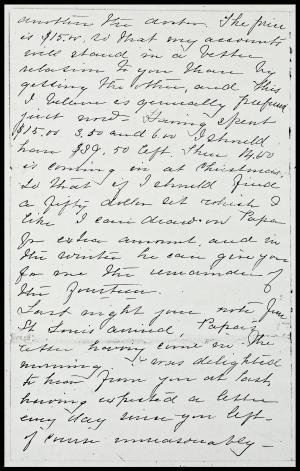 another the other. The price
is $15.00. So that my accounts
will stand in a better
relation to you than by
getting the other, and this
I believe is generally preferred
just now. Having spent
$15.00 3.50 and 6.00 I should
have $39.50 left. Then 14.00
is coming in at Christmas.
So that if I should find
a fifty dollar set which I
like I can draw on Papa
for extra amount, and in
the winter he can give you
for me the remainder of
the fourteen.
Last night your note from
St Louis arrived, Papa's
letter having come in the
morning. I was delighted
to hear from you at last
having expected a letter
every day since you left -
of course unreasonably -